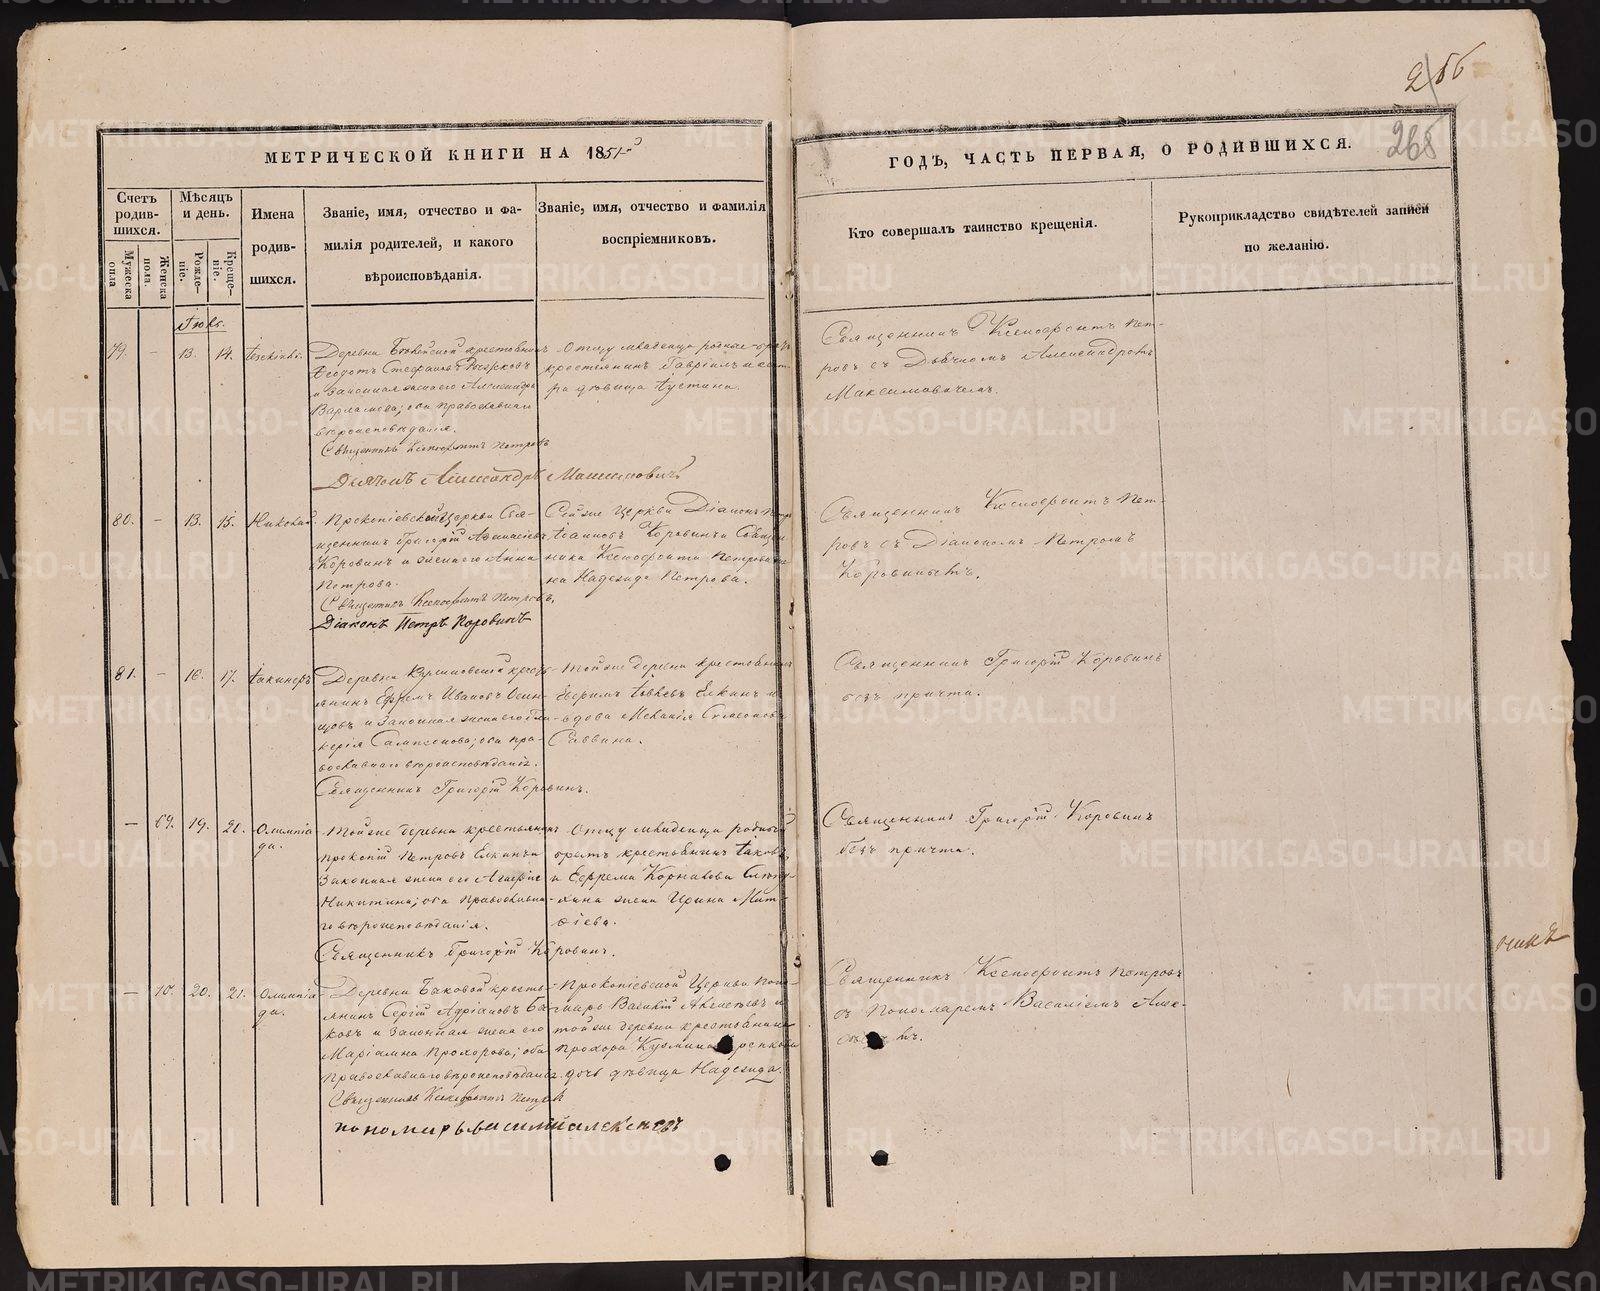 256
268
МЕТРИЧЕСКОЙ КНИГИ НА 1851й
ГОДЪ, ЧАСТЬ ПЕРВАЯ, О РОДИВШИХСЯ.
Счетъ родив-шихся.
Мужеска пола
Женска пола.
Мѣсяцъ и день.
Рожде-ніе.
Креще-ніе.
Имена
родив-
шихся.
Званіе, имя, отчество и фа-
милія родителей, и какого
вѣроисповѣданія.
Званіе, имя, отчество и фамилія
воспріемниковъ.
Кто совершалъ таинство крещенія.
Рукоприкладство свидѣтелей записи
по желанію.
79. - 13. 14.
Деревни крестьянинъ
Ѳеодотъ Стефановъ
и законная жена его Александра
Варламова; оба православнаго
вѣроисповѣданія.
Священникъ Ксенофонтъ Петровъ
Дьячокъ Александръ Максимовичъ
Отцу младенца родные братъ
крестьянинъ Гавріилъ и сест-
ра дѣвица Іустина.
Священникъ Ксенофонтъ Пет-
ровъ съ Дьячкомъ Александромъ
Максимовичемъ.
80. - 13. 15. Николай.
Прокопіевской Церкви Свя-
щенникъ Григорій Аѳанасіевъ
Коровинъ и жена его Анна
Петрова.
Священникъ Ксенофонтъ Петровъ,
Діаконъ Петръ Коровинъ
Сей же Церкви Діаконъ Петръ
Іоанновъ Коровинъ и Священ-
ника Ксенофонта Петрова же-
на Надежда Петрова.
Священникъ Ксенофонтъ Пет-
ровъ съ Діакономъ Петромъ
Коровинымъ.
81. - 16. 17. Іакинѳъ
Деревни крестья-
нинъ Ефремъ Ивановъ
и законная жена его Гли-
керія Сампсонова; оба пра-
вославнаго вѣроисповѣданія.
Священникъ Григорій Коровинъ.
Той же деревни крестьянинъ
Елкинъ и
вдова Меланія Симеонова
Саввина.
Священникъ Григорій Коровинъ
безъ причта.
- 69. 19. 20. Олимпіа
да.
Той же деревни крестьянинъ
Прокопій Петровъ Елкинъ и
Законная жена его Агафія
Никитина; оба православна-
го вѣроисповѣданія.
Священникъ Григорій Коровинъ.
Отцу младенца родный
братъ крестьянинъ Іаковъ,
и Ефрема Корнилова
жена Ирина Мат-
ѳіева.
Священникъ Григорій Коровинъ
безъ причта.
- 70. 20. 21. Олимпіа
да.
Деревни Баковой кресть-
янинъ Сергій Адріановъ Ба-
ковъ и законная жена его
Маріамна Прохорова; оба
православнаго вѣроисповѣданія.
Священникъ Ксенофонтъ Петровъ
пономарь василій алексѣевъ
Прокопіевской Церкви Поно-
марь Василій Алексѣевъ и
той же деревни крестьянина
Прохора Кузмина
дочь дѣвица Надежда.
Священникъ Ксенофонтъ Петровъ
съ Пономаремъ Василіемъ Алек-